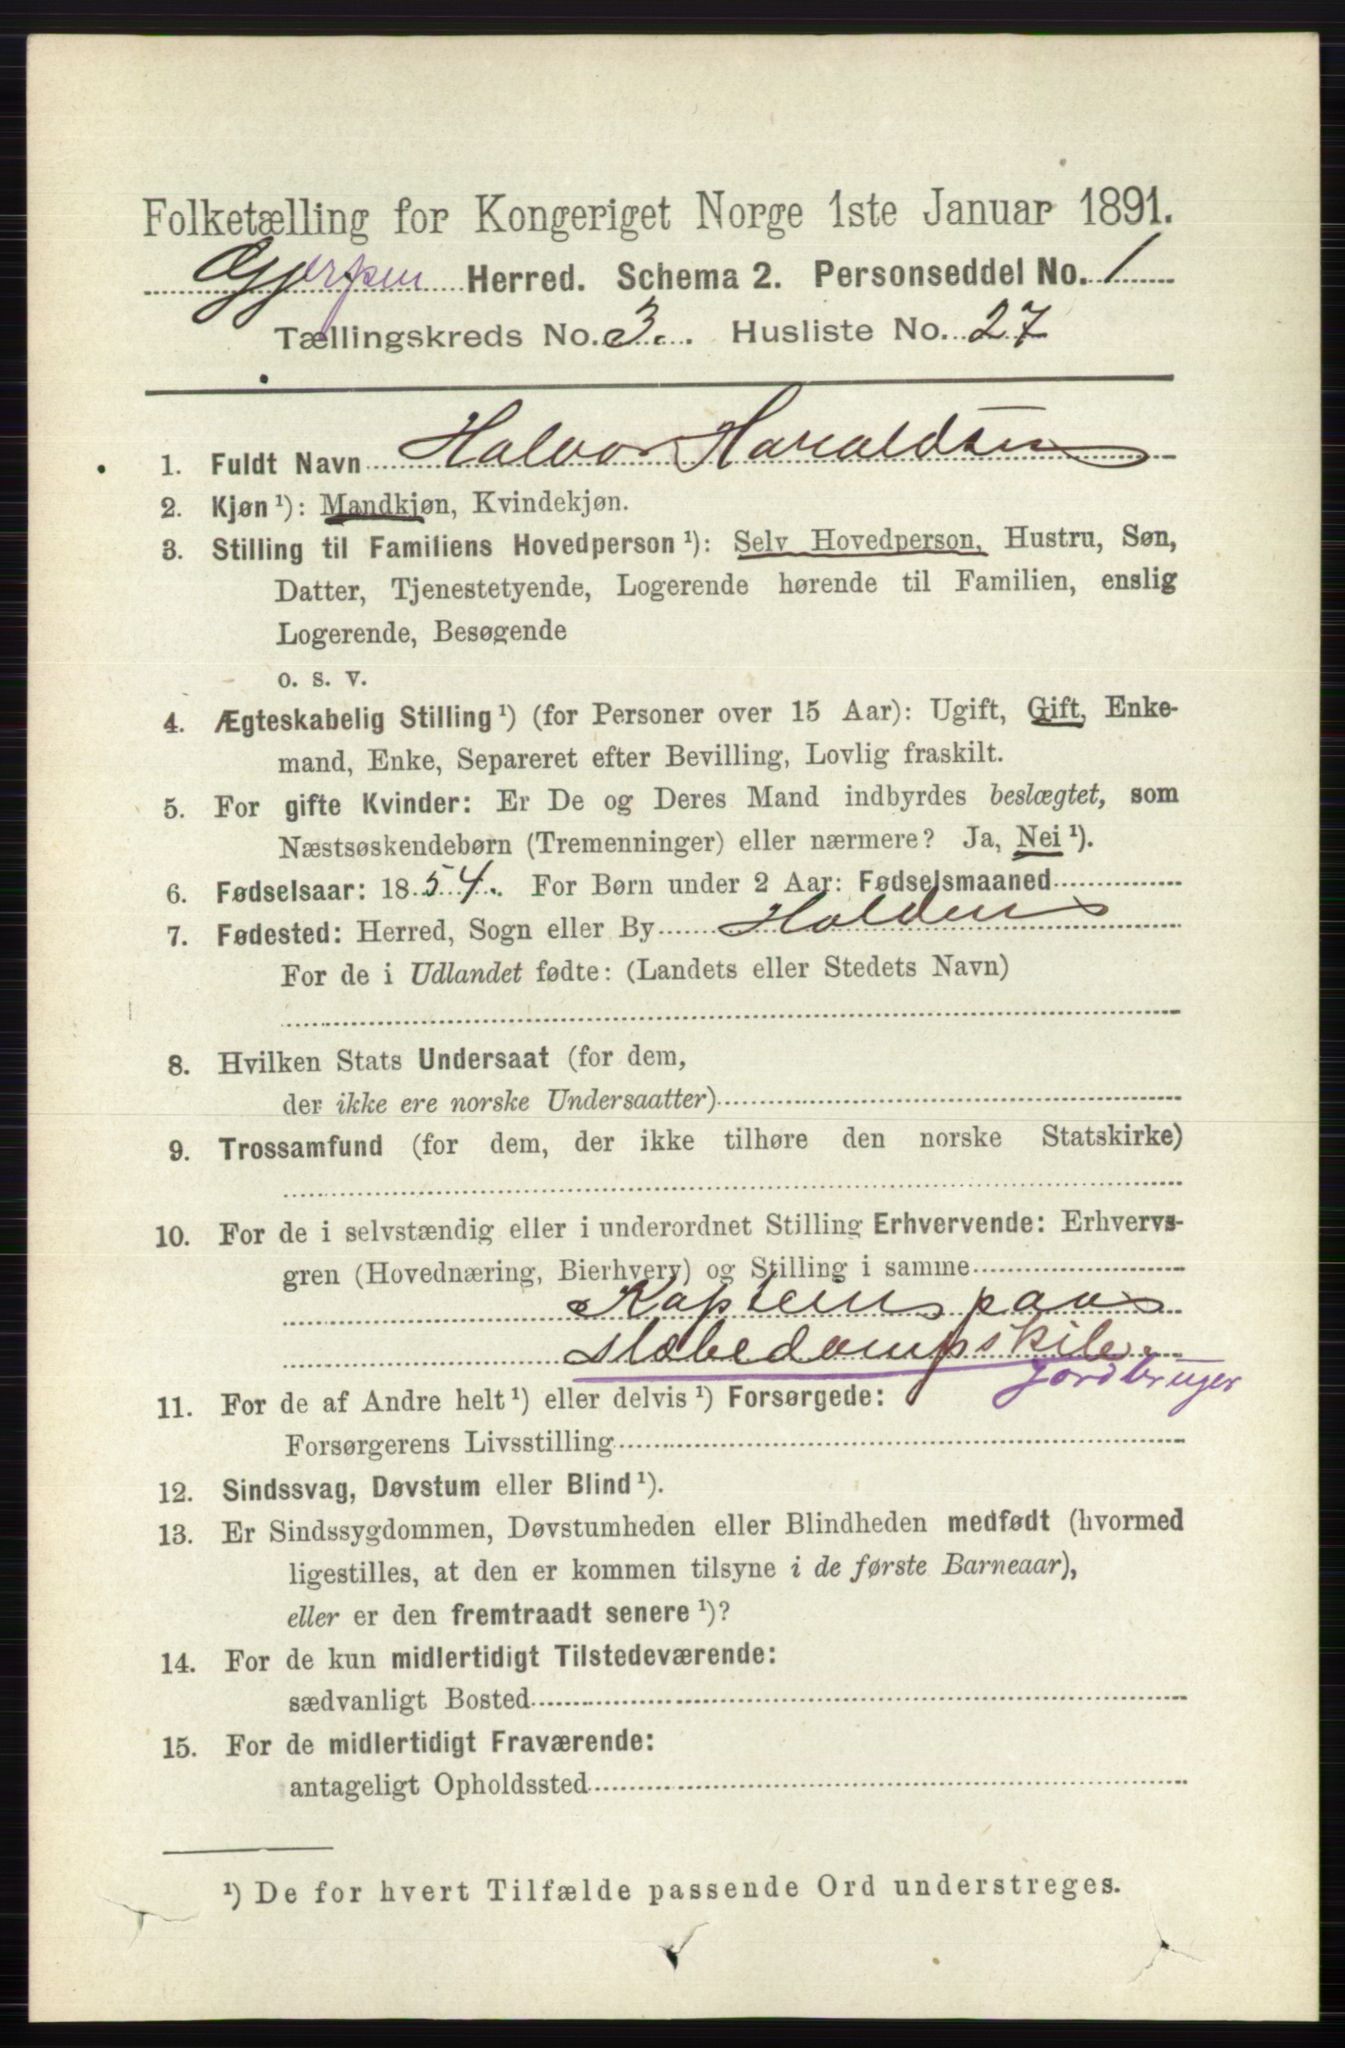 Folketælling for Kongeriget Norge 1ste Januar 1891.
Gjerpen Herred. Schema 2. Personseddel No. 1
Tællingskreds No. 3. Husliste No. 27
1. Fuldt Navn Halvor Haraldsen
2. Kjøn ¹): Mandkjøn, Kvindekjøn.
3. Stilling til Familiens Hovedperson ¹): Selv Hovedperson, Hustru, Søn,
Datter, Tjenestetyende, Logerende hørende til Familien, enslig
Logerende, Besøgende
o. s. v.
4. Ægteskabelig Stilling ¹) (for Personer over 15 Aar): Ugift, Gift, Enke-
mand, Enke, Separeret efter Bevilling, Lovlig fraskilt.
5. For gifte Kvinder: Er De og Deres Mand indbyrdes beslægtet, som
Næstsøskendebørn (Tremenninger) eller nærmere? Ja, Nei ¹).
6. Fødselsaar: 1854. For Børn under 2 Aar: Fødselsmaaned
7. Fødested: Herred, Sogn eller By Holden
For de i Udlandet fødte: (Landets eller Stedets Navn)
8. Hvilken Stats Undersaat (for dem,
der ikke ere norske Undersaatter)
9. Trossamfund (for dem, der ikke tilhøre den norske Statskirke)
10. For de i selvstændig eller i underordnet Stilling Erhvervende: Erhvervs-
gren (Hovednæring, Bierhverv) og Stilling i samme
Kaptein paa
slæbedampskib.
Jordbruger
11. For de af Andre helt ¹) eller delvis ¹) Forsørgede:
Forsørgerens Livsstilling
12. Sindssvag, Døvstum eller Blind ¹).
13. Er Sindssygdommen, Døvstumheden eller Blindheden medfødt (hvormed
ligestilles, at den er kommen tilsyne i de første Barneaar),
eller er den fremtraadt senere ¹)?
14. For de kun midlertidigt Tilstedeværende:
sædvanligt Bosted
15. For de midlertidigt Fraværende:
antageligt Opholdssted
¹) De for hvert Tilfælde passende Ord understreges.